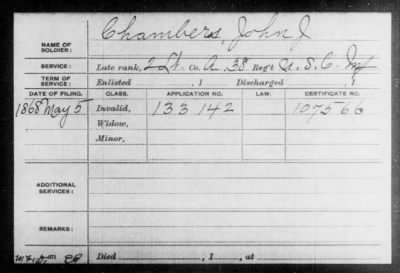 Chambers, John J
NAME OF SOLDIER:
SERVICE: Late rank, 2 Lt. Co. A, 38 Reg't U. S. C. Inf
TERM OF SERVICE: Enlisted , 1 Discharged , 1
DATE OF FILING. CLASS. APPLICATION NO. LAW. CERTIFICATE NO.
1868 May 5 Invalid, 133 142 107566
Widow,
Minor,
ADDITIONAL SERVICES:
REMARKS:
Died , 1 , at